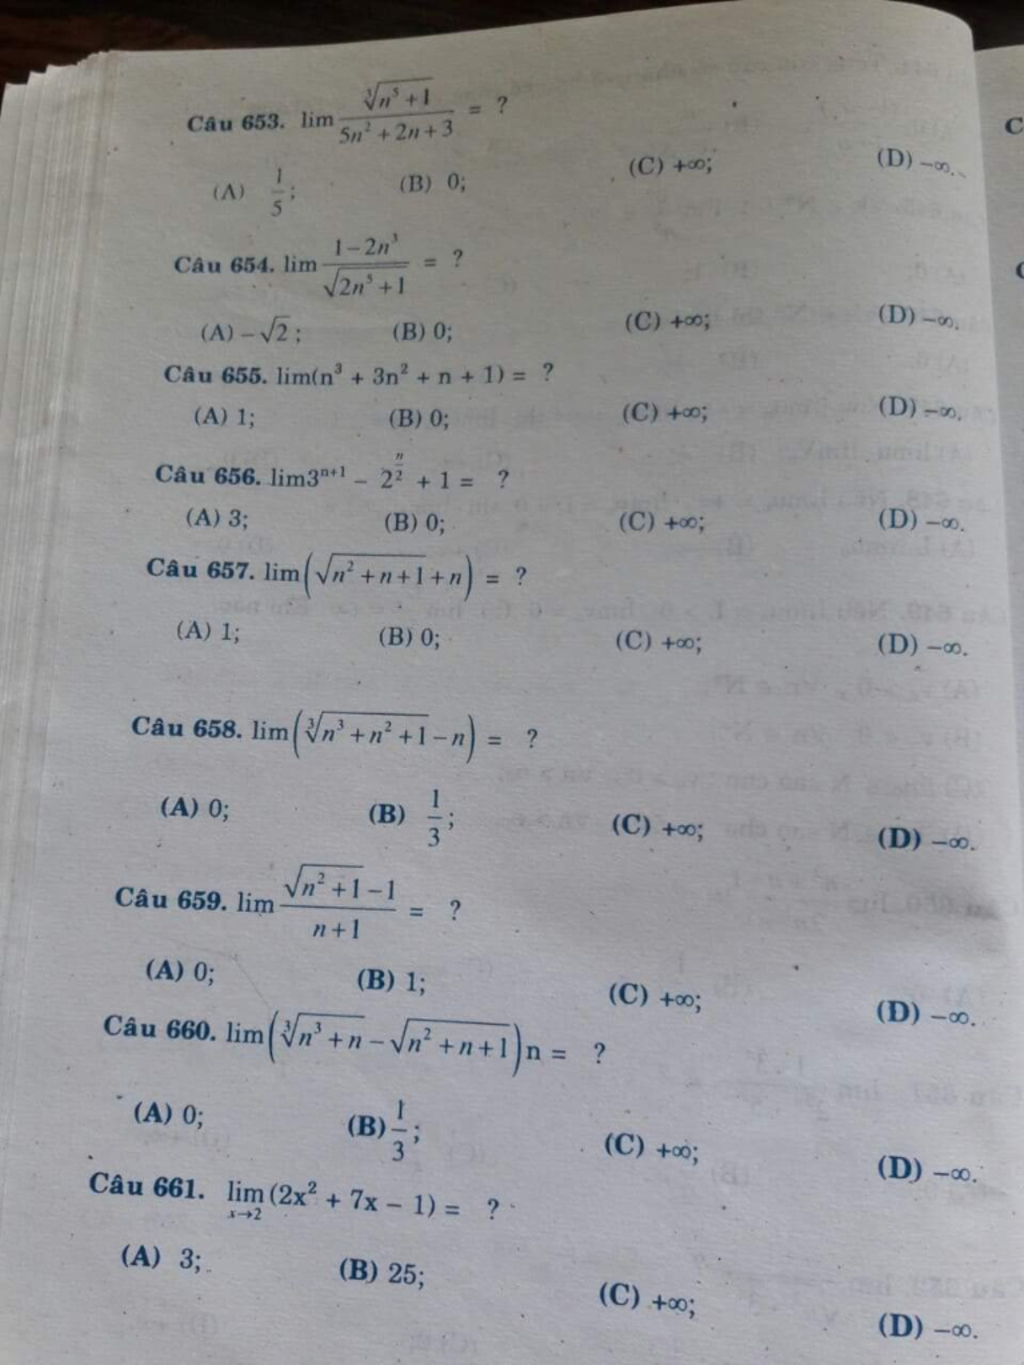 Câu 653. lim \frac{\sqrt[3]{n^5+1}}{5n^2+2n+3} = ?
(A) \frac{1}{5}; (B) 0; (C) +∞; (D) −∞.
Câu 654. lim \frac{1-2n^3}{\sqrt{2n^5+1}} = ?
(A) −√2; (B) 0; (C) +∞; (D) −∞.
Câu 655. lim(n³ + 3n² + n + 1) = ?
(A) 1; (B) 0; (C) +∞; (D) −∞.
Câu 656. lim3^{n+1} − 2^{\frac{n}{2}} + 1 = ?
(A) 3; (B) 0; (C) +∞; (D) −∞.
Câu 657. lim(\sqrt{n^2+n+1}+n) = ?
(A) 1; (B) 0; (C) +∞; (D) −∞.
Câu 658. lim(\sqrt[3]{n^3+n^2+1}−n) = ?
(A) 0; (B) \frac{1}{3}; (C) +∞; (D) −∞.
Câu 659. lim \frac{\sqrt{n^2+1}-1}{n+1} = ?
(A) 0; (B) 1; (C) +∞; (D) −∞.
Câu 660. lim(\sqrt[3]{n^3+n}−\sqrt{n^2+n+1})n = ?
(A) 0; (B) \frac{1}{3}; (C) +∞; (D) −∞.
Câu 661. \lim_{x→2}(2x² + 7x − 1) = ?
(A) 3; (B) 25; (C) +∞; (D) −∞.